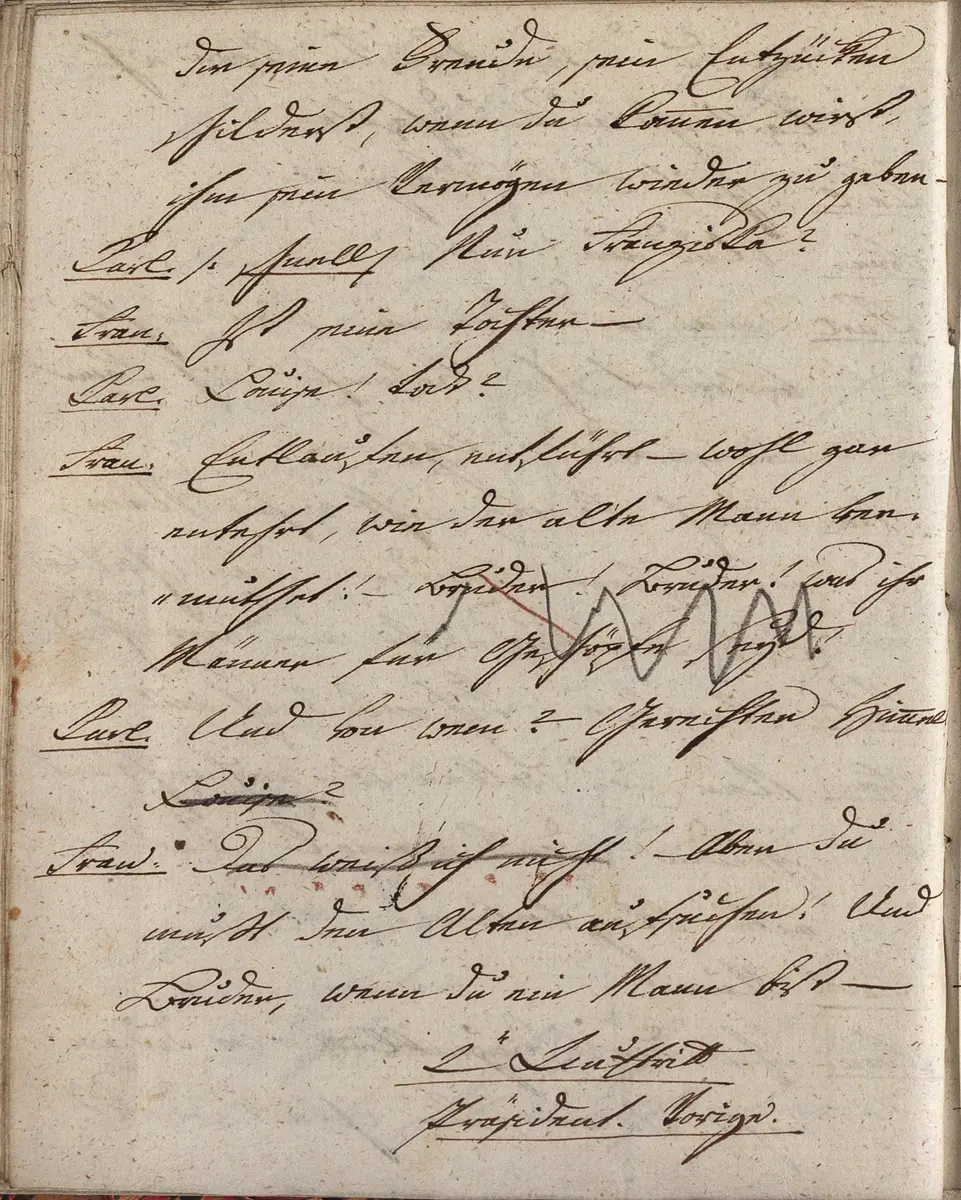 dir seine Freude, sein Entzücken
schilderst, wenn du kom̅en wirst,
ihm sein Vermögen wieder zu geben—
Carl. /: schnell/ Nun Franziska?
Fran: Ist seine Tochter—
Carl. Louise! todt?
Fran: Entlaufen, entführt — wohl gar
entehrt, wie der alte Mann ver-
"muthet! — Bruder! Bruder! was ihr
Männer für Geschöpfe seyd!
Carl. Und von wem? — Gerechter Him̅el
Louise?
Fran: Das weiß ich nicht! — Aber du
mußt den Alten aufsuchen! Und
Bruder, wenn du ein Mann bist —
2r Auftritt
Präsident. Vorige.